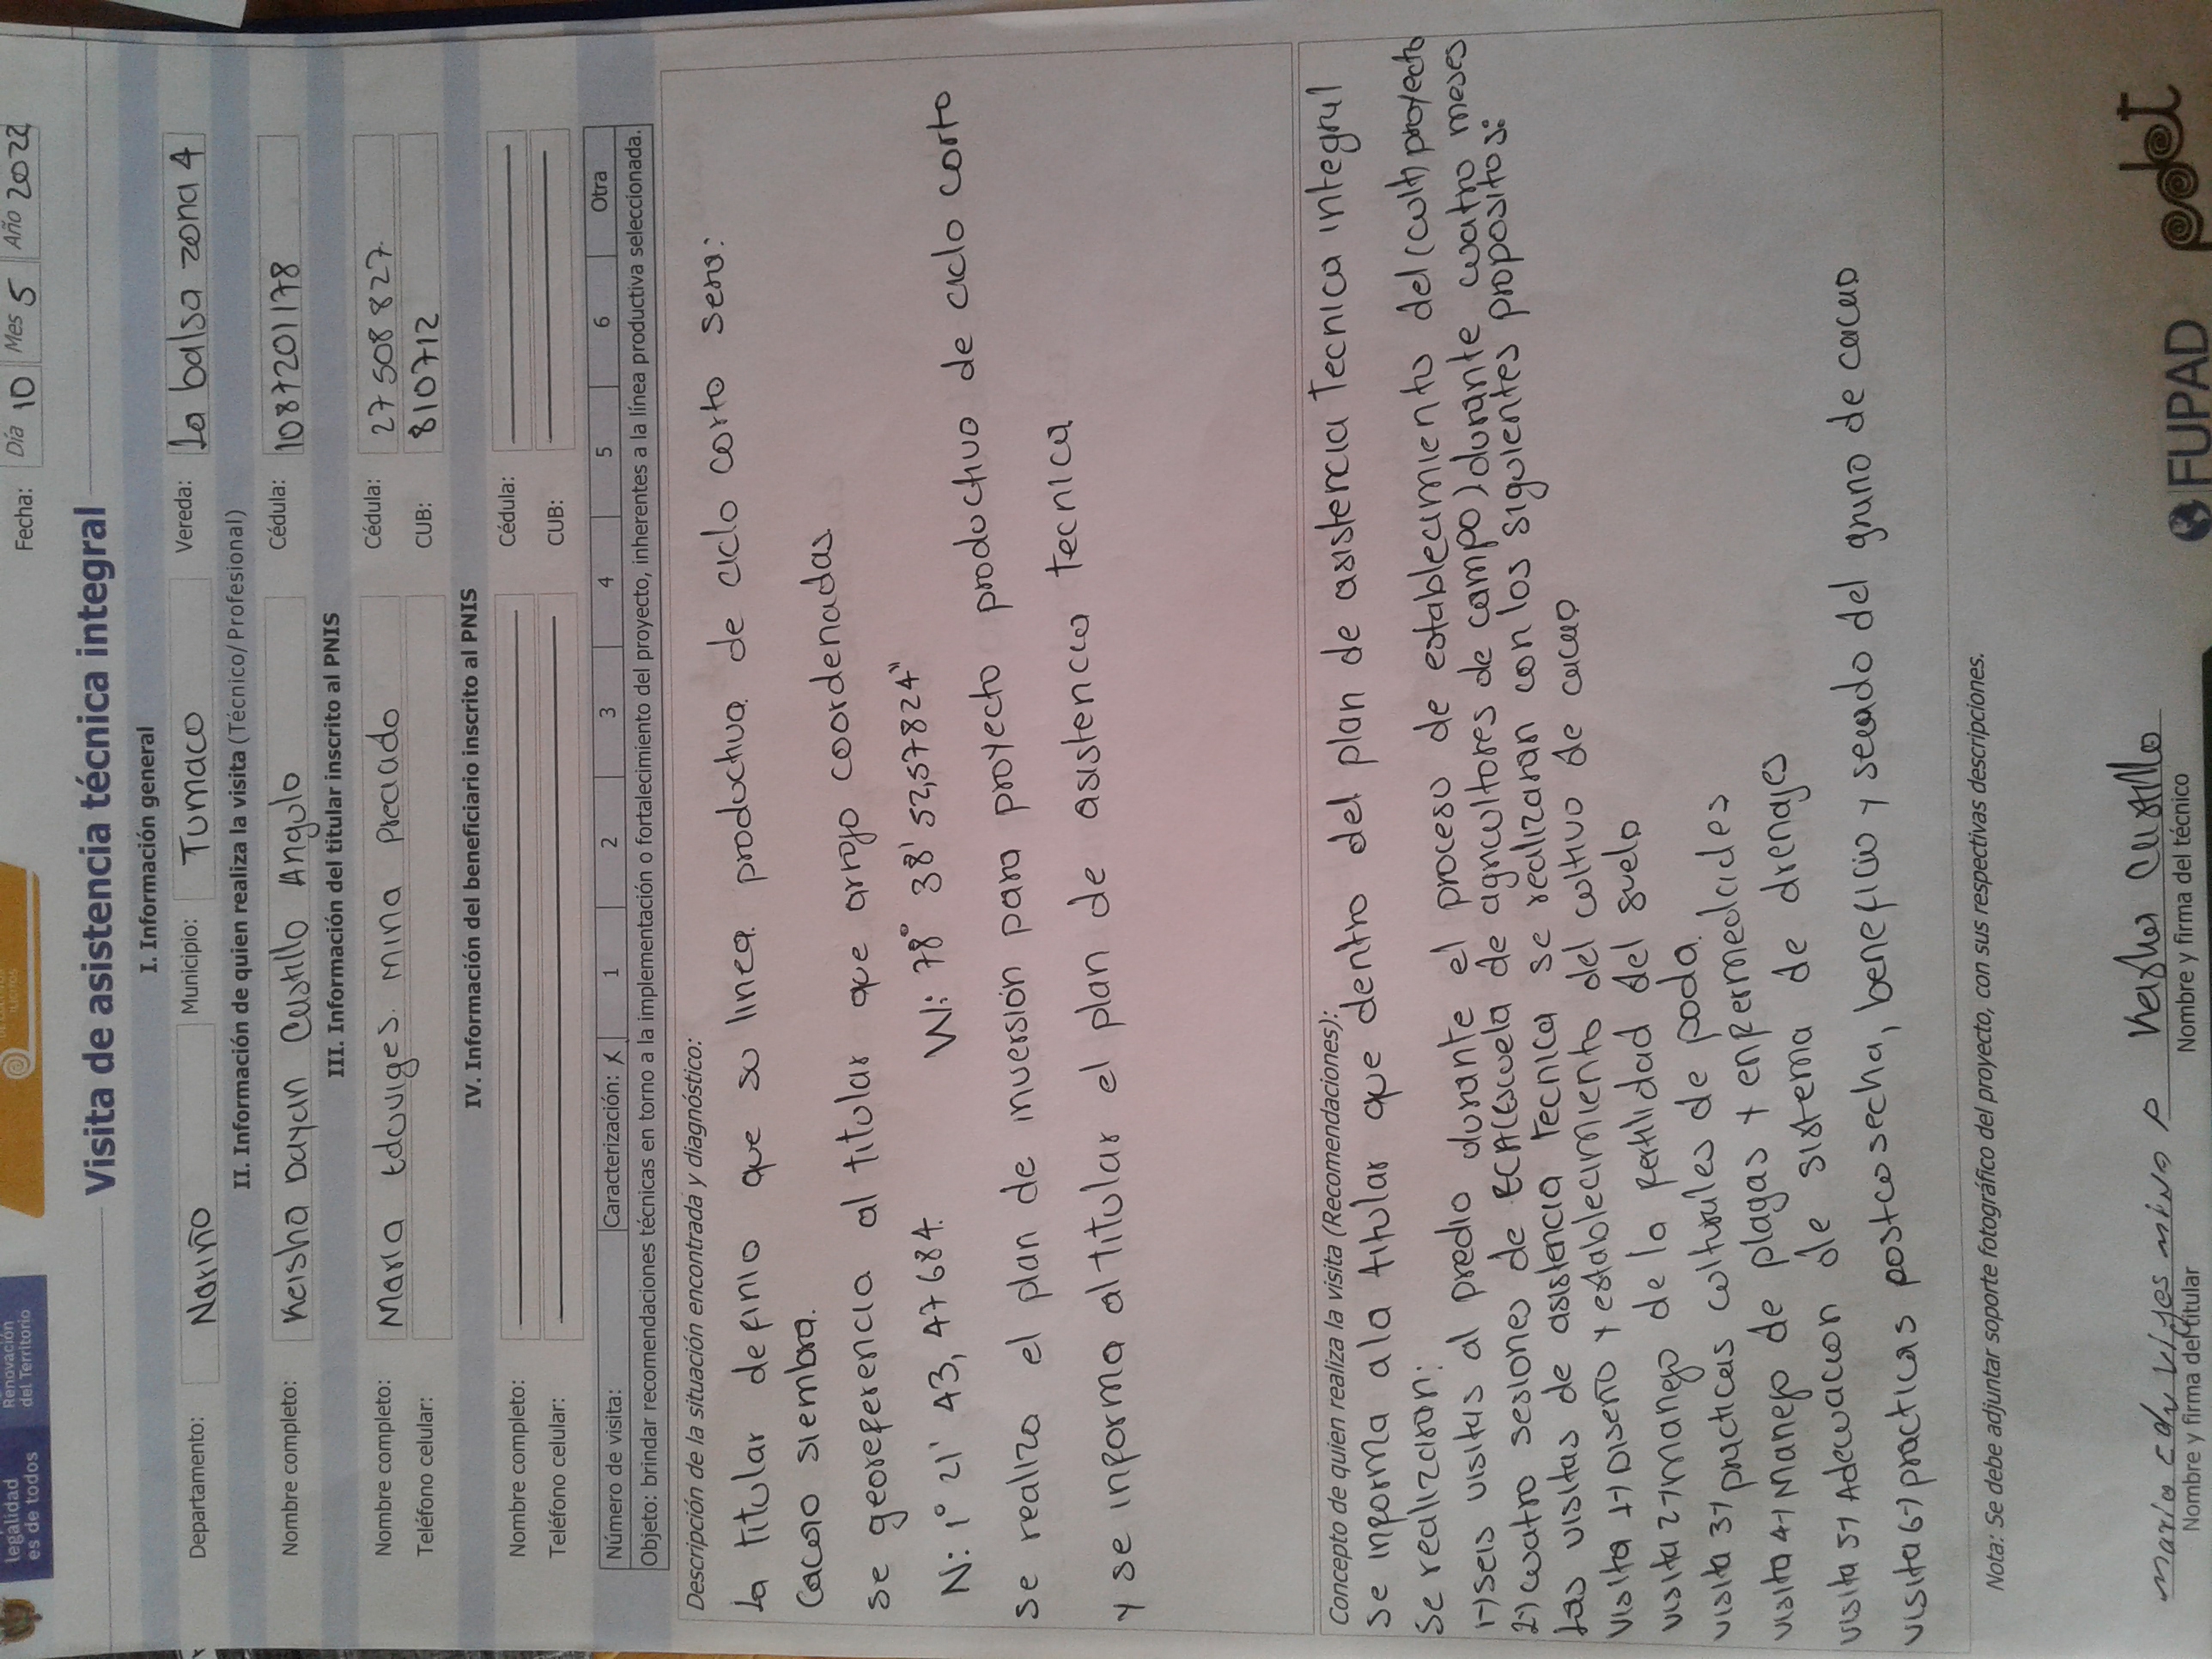 legalidad
es de todos
Renovación
del Territorio
ILÍCITOS
Fecha: Día 10 Mes 5 Año 2022
Visita de asistencia técnica integral
I. Información general
Departamento: Nariño Municipio: Tumaco Vereda: La balsa zona 4
II. Información de quien realiza la visita (Técnico/ Profesional)
Nombre completo: Keisha Dayan Castillo Angulo Cédula: 1087201178
III. Información del titular inscrito al PNIS
Nombre completo: Maria Eduviges mina preciado Cédula: 27 508 827
Teléfono celular: CUB: 810712
IV. Información del beneficiario inscrito al PNIS
Nombre completo: Cédula:
Teléfono celular: CUB:
Número de visita: Caracterización: X 1 2 3 4 5 6 Otra
Objeto: brindar recomendaciones técnicas en torno a la implementación o fortalecimiento del proyecto, inherentes a la línea productiva seleccionada.
Descripción de la situación encontrada y diagnóstico:
La titular definio que su linea productiva de ciclo corto sera:
Cacao siembra.
se georeferencia al titular que arrojo coordenadas
N: 1° 21' 43,47684 W: 78° 38' 52,57824"
se realizo el plan de inversion para proyecto productivo de ciclo corto
y se informa al titular el plan de asistencia tecnica
Concepto de quien realiza la visita (Recomendaciones):
se informa a la titular que dentro del plan de asistencia Tecnica integral
se realizaran:
1-) seis visitas al predio durante el proceso de establecimiento del (cult) proyecto
2-) cuatro sesiones de ECA (Escuela de agricultores de campo) durante cuatro meses
Las visitas de asistencia Tecnica se realizaran con los siguientes propositos:
visita 1-) Diseño y establecimiento del cultivo de cacao
visita 2-) manejo de la fertilidad del suelo
visita 3-) practicas culturales de poda.
visita 4-) Manejo de plagas y enfermedades
visita 5-) Adecuacion de sistema de drenajes
visita 6-) practicas postcosecha, beneficio y secado del grano de cacao
Nota: Se debe adjuntar soporte fotográfico del proyecto, con sus respectivas descripciones.
maria eduviges mina p Keisha Castillo
Nombre y firma del titular Nombre y firma del técnico
FUPAD pdet